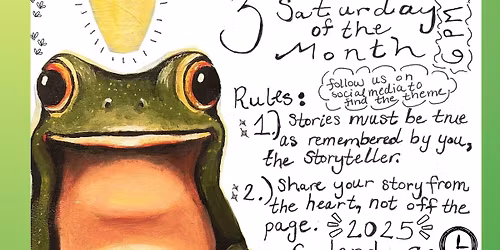 3
Saturday
of the
Month
follow us on
social media to
find the theme
Rules:
1.) Stories must be true
as remembered by you,
the storyteller.
2.) Share your story from
the heart, not off the
page.
2025